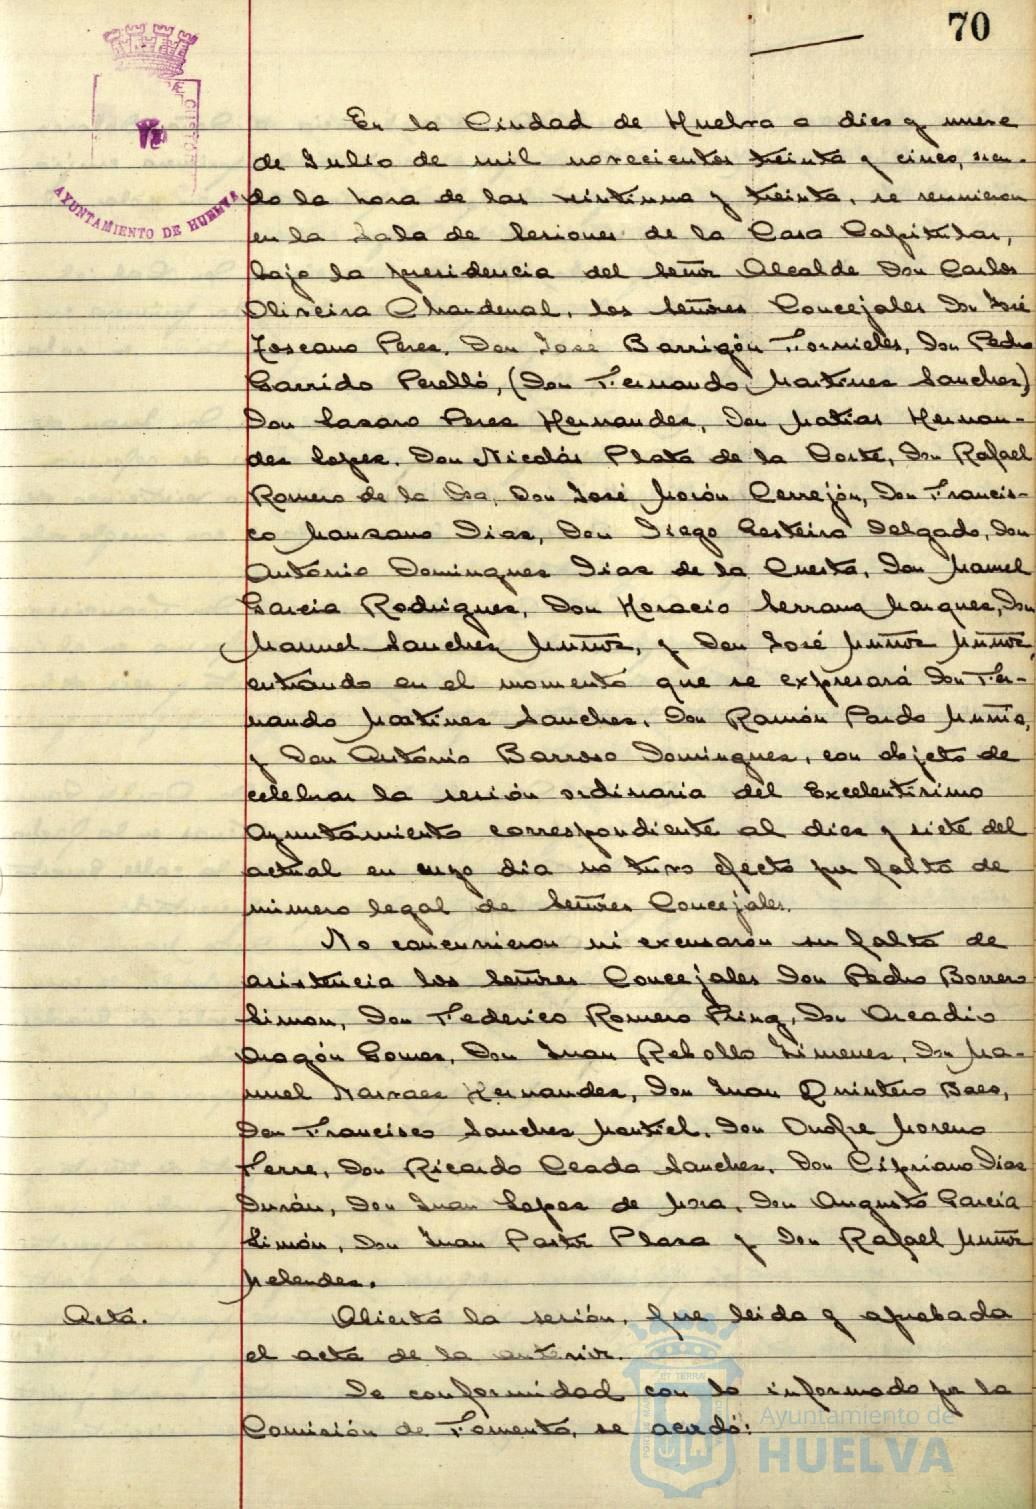 70
AYUNTAMIENTO DE HUELVA
En la Ciudad de Huelva a diez y nueve
de Julio de mil novecientos treinta y cinco, sien-
do la hora de las veintiuna y treinta, se reunieron
en la Sala de Sesiones de la Casa Capitular,
bajo la presidencia del Señor Alcalde Don Carlos
Oliveira Chardenal, los Señores Concejales Don José
Toscano Perez, Don José Barrigón Fornieles, Don Pedro
Garrido Perelló, (Don Fernando Martinez Sanchez)
Don Lazaro Perez Hernandez, Don Matias Hernan-
dez Lopez, Don Nicolás Plata de la Corte, Don Rafael
Romero de la Osa, Don José Morón Cerrejón, Don Francis-
co Manzano Diaz, Don Diego Delgado, Don
Antonio Dominguez Diaz de la Cuesta, Don Manuel
Garcia Rodriguez, Don Horacio Serrano Marquez, Don
Manuel Sanchez Muñoz, y Don José Muñoz Muñoz,
entrando en el momento que se expresará Don Fer-
nando Martinez Sanchez, Don Ramón Pardo Muñiz,
y Don Antonio Barroso Dominguez, con objeto de
celebrar la sesión ordinaria del Excelentisimo
Ayuntamiento correspondiente al diez y siete del
actual en cuyo dia no tuvo efecto por falta de
número legal de Señores Concejales.
No concurrieron ni excusaron su falta de
asistencia los Señores Concejales Don Pedro Borrero
Limon, Don Federico Romero Don Arcadio
Aragón Gomez, Don Juan Rebollo Jimenez, Don Ma-
nuel Narvaez Hernandez, Don Juan Quintero Baez,
Don Francisco Sanchez Montiel, Don Onofre Moreno
Terre, Don Ricardo Ceada Sanchez, Don Cipriano Diaz
Durán, Don Juan Lopez de Mora, Don Augusto Garcia
Limón, Don Juan Pastor Plaza y Don Rafael Muñoz
Melendez.
Acta.
Abierta la sesión, fue leida y aprobada
el acta de la anterior.
De conformidad con lo informado por la
Comisión de Fomento, se acordó:
Ayuntamiento de
HUELVA